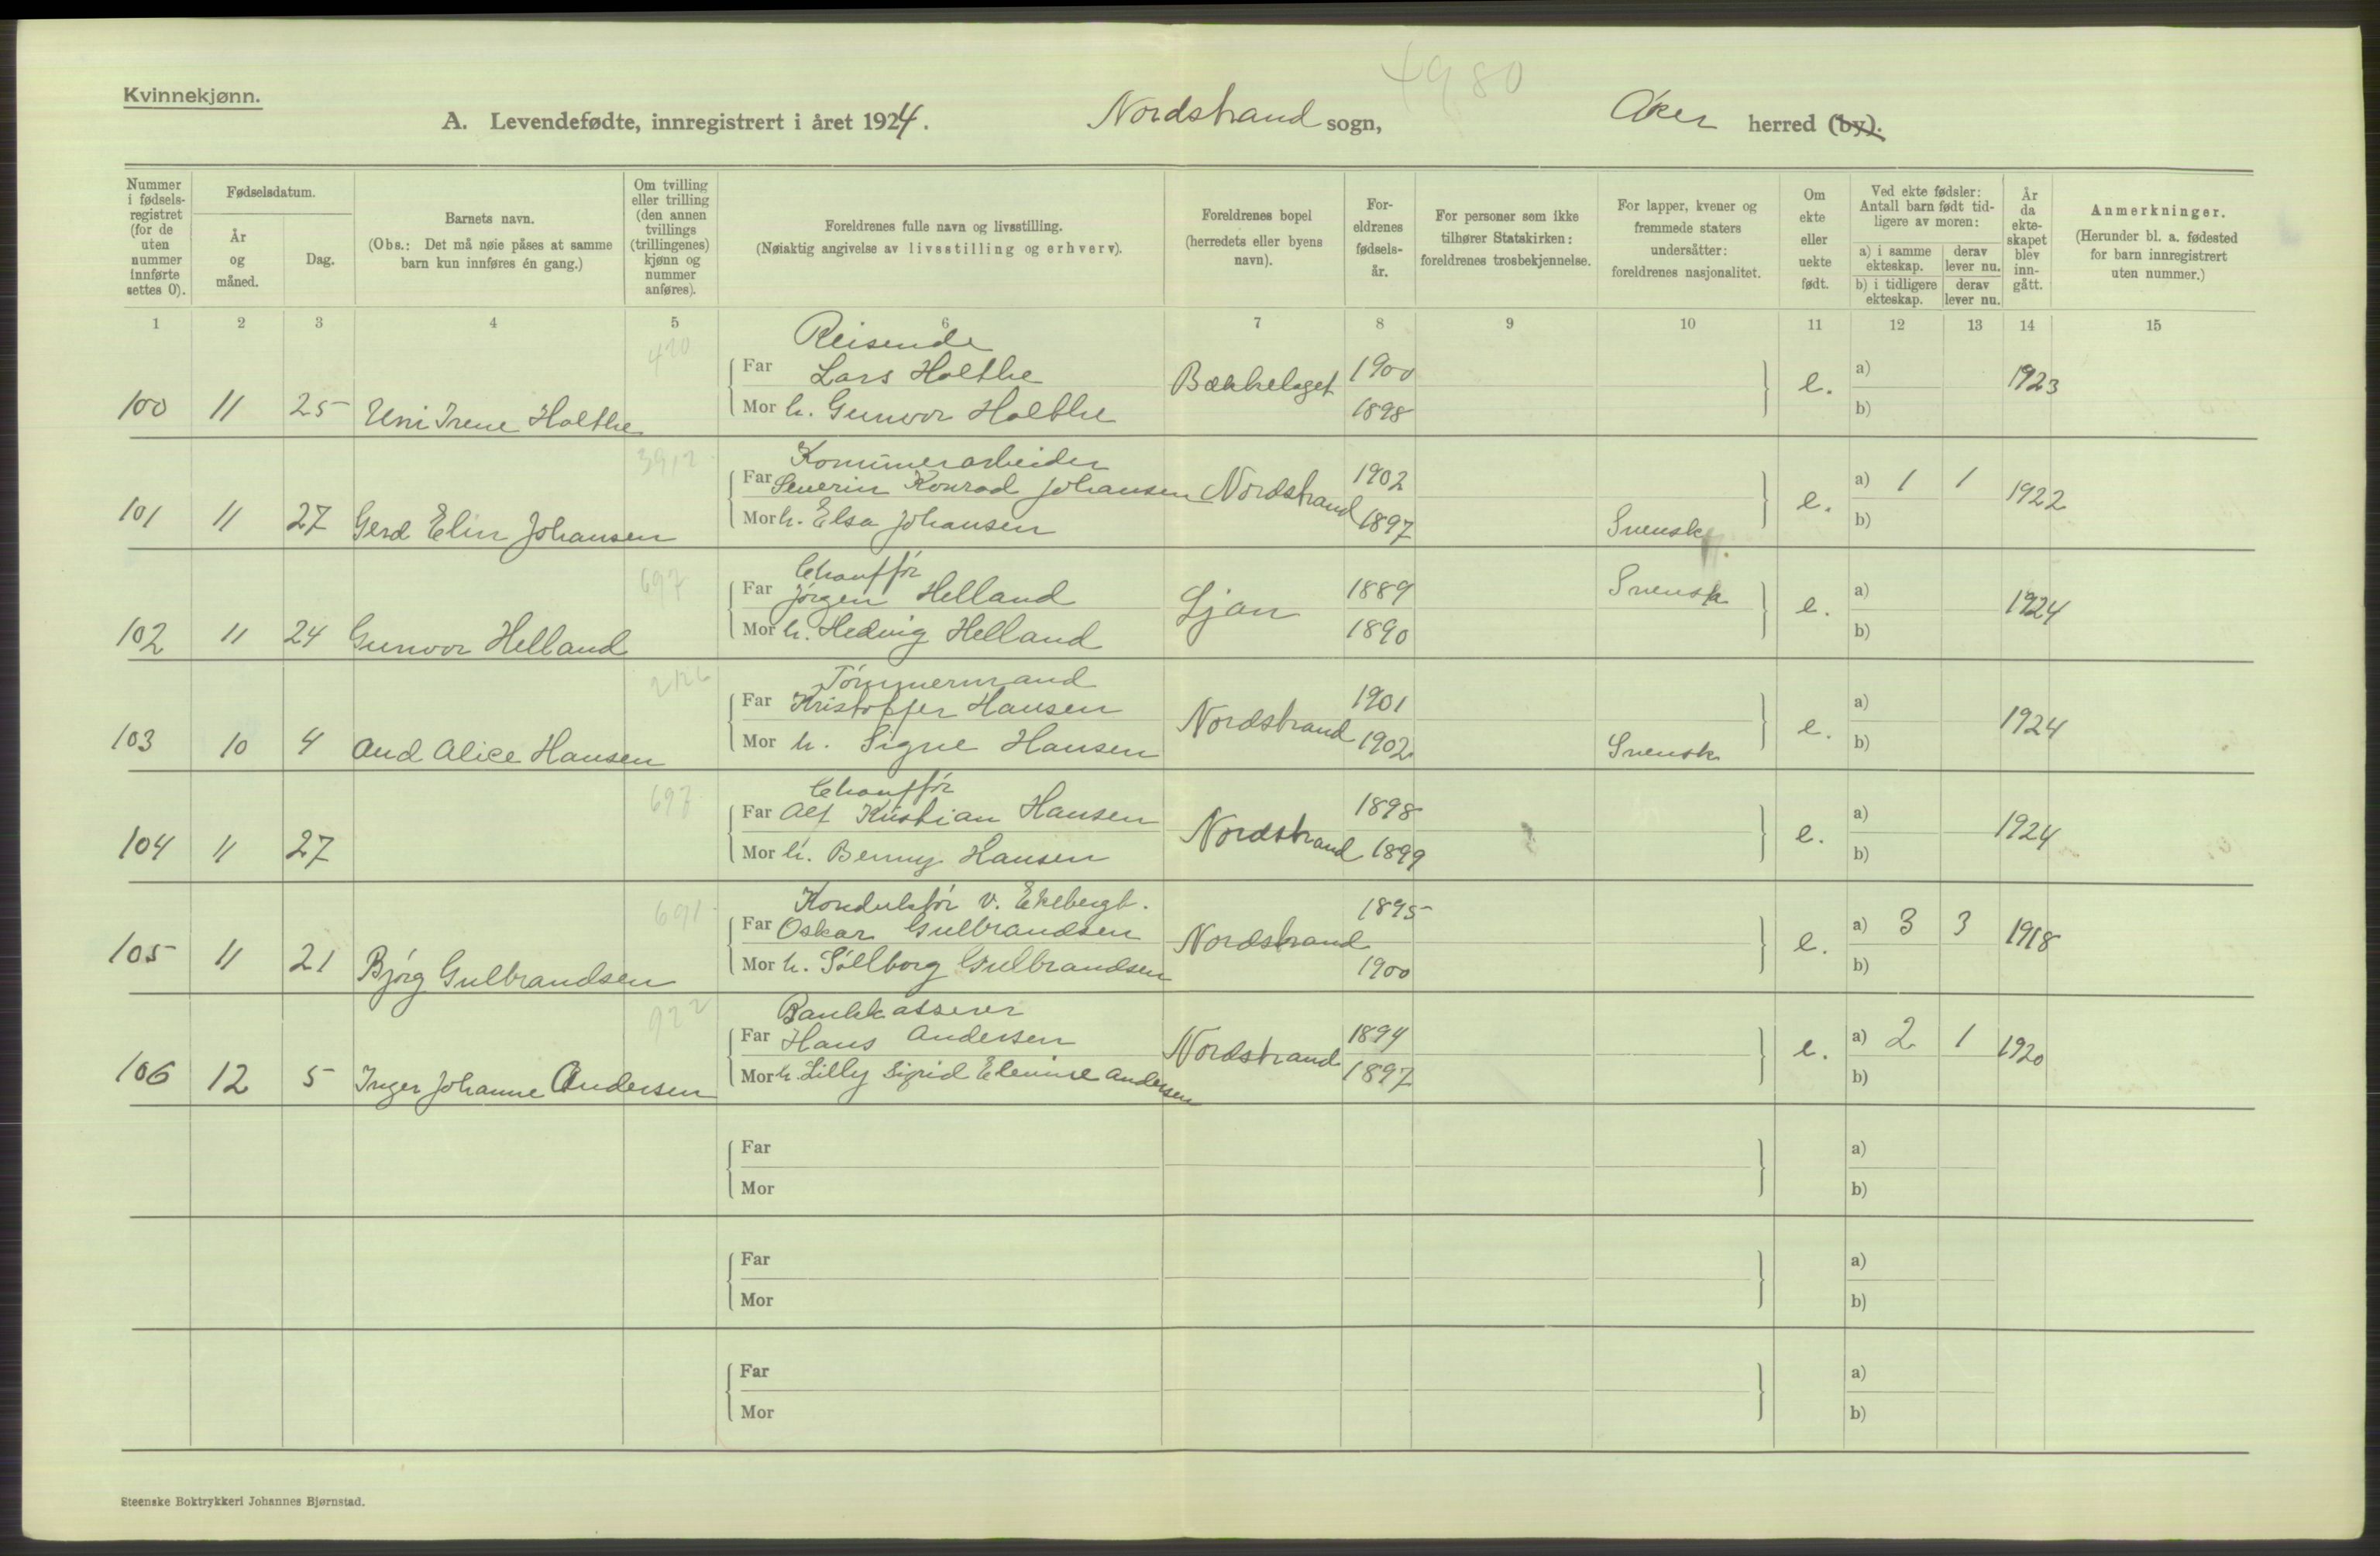 4980
Kvinnekjønn.
A. Levendefødte, innregistrert i året 1924. Nordstrand sogn, Aker herred (by).
Nummer i fødsels-registret (for de uten nummer innførte settes 0).
Fødselsdatum.
År og måned.
Dag.
Barnets navn.
(Obs.: Det må nøie påses at samme barn kun innføres én gang.)
Om tvilling eller trilling (den annen tvillings (trillingenes) kjønn og nummer anføres).
Foreldrenes fulle navn og livsstilling.
(Nøiaktig angivelse av livsstilling og erhverv).
Foreldrenes bopel (herredets eller byens navn).
For-eldrenes fødsels-år.
For personer som ikke tilhører Statskirken: foreldrenes trosbekjennelse.
For lapper, kvener og fremmede staters undersåtter: foreldrenes nasjonalitet.
Om ekte eller uekte født.
Ved ekte fødsler: Antall barn født tid-ligere av moren:
a) i samme ekteskap. derav lever nu.
b) i tidligere ekteskap. derav lever nu.
År da ekte-skapet blev inn-gått.
Anmerkninger.
(Herunder bl. a. fødested for barn innregistrert uten nummer.)
1 2 3 4 5 6 7 8 9 10 11 12 13 14 15
420 Reisende
Far Lars Holthe Bækkelaget 1900 e. a) 1923
100 11 25 Uni Irene Holthe Mor h. Gunvor Holthe 1898 b)
3912 Kommunearbeider
Far Severin Konrad Johansen Nordstrand 1902 e. a) 1 1 1922
101 11 27 Gerd Elin Johansen Mor h. Elsa Johansen 1897 Svensk b)
697 Chauffør
Far Jørgen Helland Ljan 1889 Svensk e. a) 1924
102 11 24 Gunvor Helland Mor h. Hedvig Helland 1890 b)
2126 Tømmermand
Far Kristoffer Hansen Nordstrand 1901 e. a) 1924
103 10 4 Aud Alice Hansen Mor h. Signe Hansen 1902 Svensk b)
697 Chauffør
Far Alf Kristian Hansen Nordstrand 1898 e. a) 1924
104 11 27 Mor h. Benny Hansen 1899 b)
691 Konduktør v. Ekebergb.
Far Oskar Gulbrandsen Nordstrand 1895 e. a) 3 3 1918
105 11 21 Bjørg Gulbrandsen Mor h. Sollborg Gulbrandsen 1900 b)
922 Bankkasserer
Far Hans Andersen Nordstrand 1894 e. a) 2 1 1920
106 12 5 Inger Johanne Andersen Mor h. Lilly Sigrid Andersen 1897 b)
Far a)
Mor b)
Far a)
Mor b)
Far a)
Mor b)
Steenske Boktrykkeri Johannes Bjørnstad.